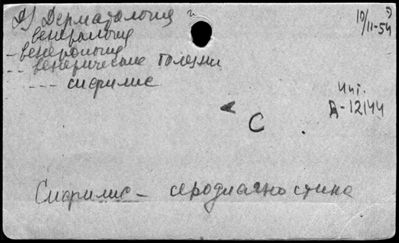 Д) Дерматология
венерология
- венерология
-- венерические болезни
--- сифилис
10/II-54
Чит.
Д-12144
С
Сифилис - серодиагностика